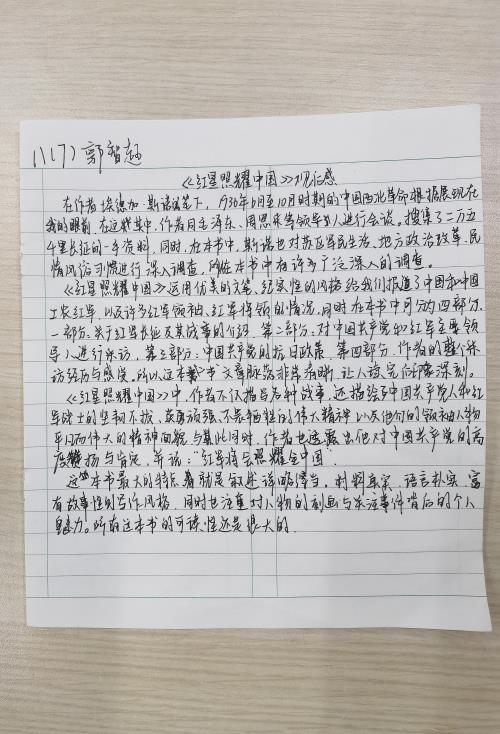 八(7) 郭智
《红星照耀中国》观后感
在作者埃德加·斯诺的笔下,1936年6月至10月时期的中国西北革命根据展现在
我的眼前,在这发其中,作者同毛泽东、周恩来等领导人进行会谈。搜集了二万五
千里长征的一手资料,同时,在本书中,斯诺也对苏区军民生活、地方政治改革、民
情风俗习惯进行了深入调查,所以在本书中有许多广泛深入的调查。
《红星照耀中国》运用优美的文笔,纪实性的风格给我们报道了中国和中国
工农红军,以及许多红军领袖、红军将领的情况,同时在本书中可分为四部分,
一部分:关于红军长征及其战事的介绍,第二部分:对中国共产党的红军主要领
导人进行采访,第三部分:中国共产党的抗日政策,第四部分,作者的整个采
访经历与感受,所以这本书文章脉络非常有晰,让人读完后印象深刻。
《红星照耀中国》中,作者不仅描写各种战事,还描绘了中国共产党人和红
军战士的坚韧不拔、英勇顽强、不畏牺牲的伟大精神以及他们的领袖人物
平凡而伟大的精神面貌,与其此同时,作者也表出他对中国共产党的高
度赞扬与肯定,并说:"红军将会照耀全中国"
这本书最大的特点就是叙述详略得当,材料真实,语言朴实,富
有故事性的写作风格,同时也注重对人物的刻画与关注事件背后的个人
魅力。所有这本书的可读性还是很大的.